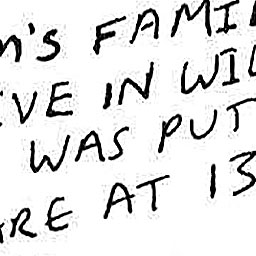 m's FAMI
IVE IN WIL
WAS PUT
ARE AT 13